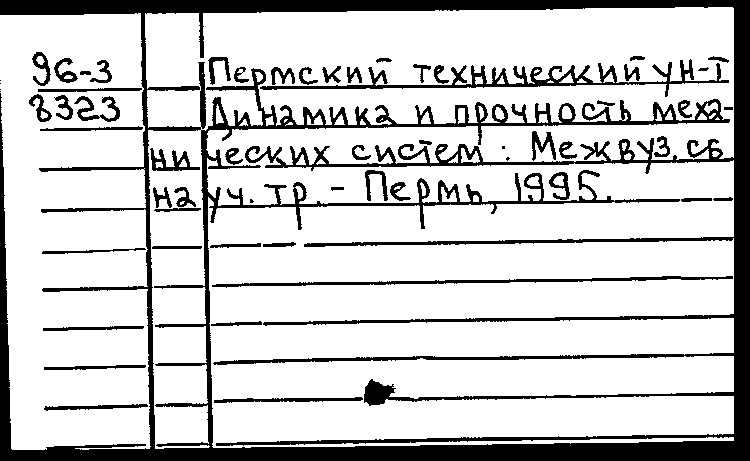 96-3 Пермский технический ун-т
8323 Динамика и прочность меха-
нических систем : Межвуз. сб
науч. тр. - Пермь, 1995.